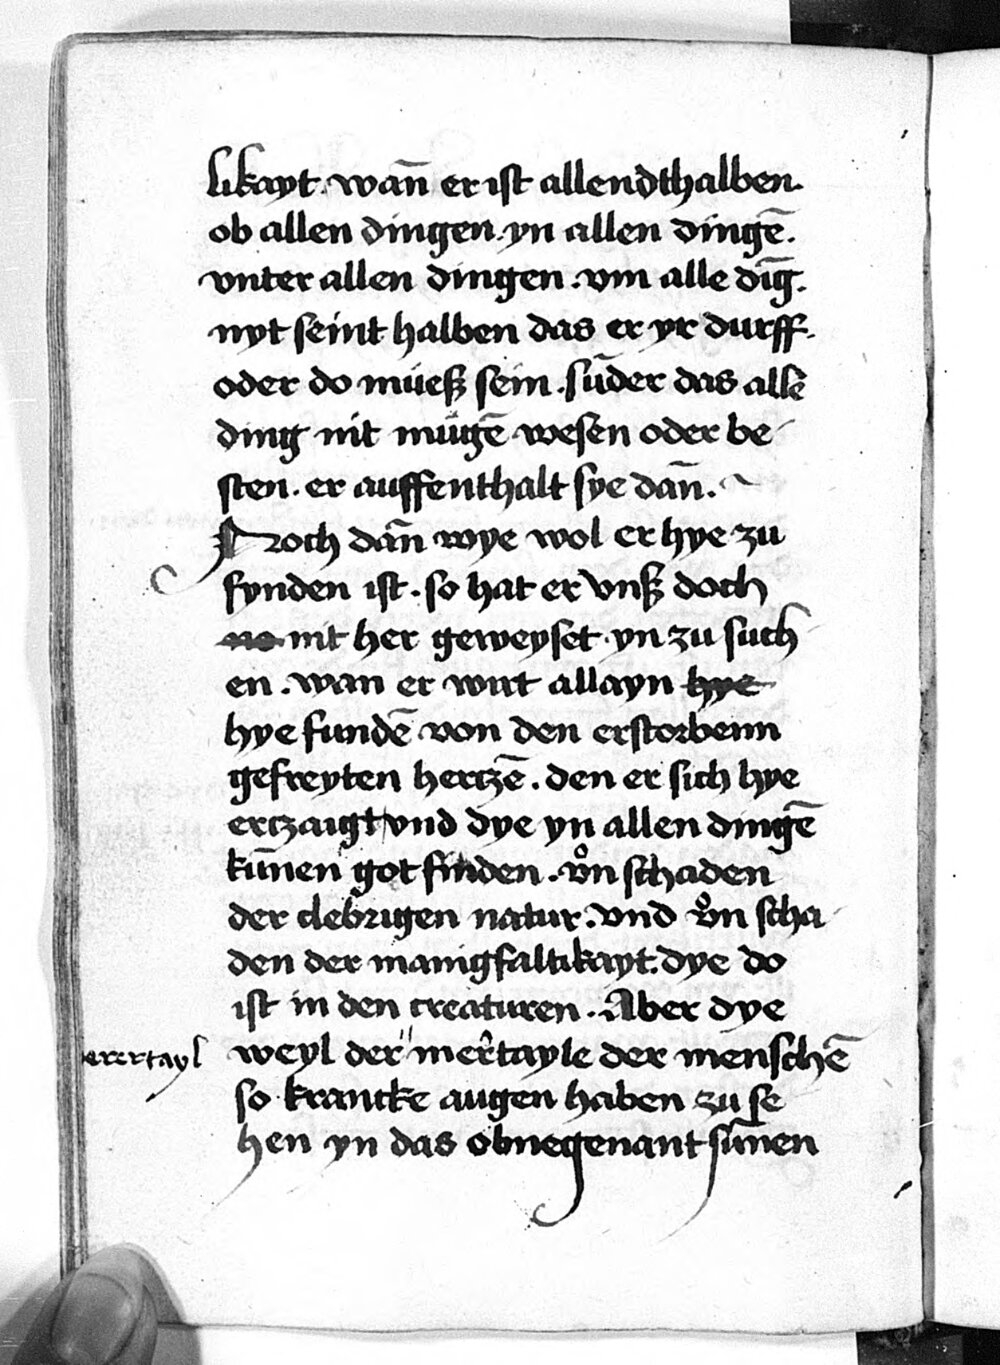 likayt. wan̄ er ist allendthalben.
ob allen dingen. yn allen dingē.
vnter allen dingen. vm alle dīg.
nyt seint halben das er yr durff.
oder do mueß sein. sūder das alle
ding nit mugē wesen oder be
sten. er auffenthalt sye dan̄.
Noch dan̄ wye wol er hye zu
fynden ist. so hat er vnß doch
nit her geweyset. yn zu such
en. wan er wirt allayn
hye fundē von den erstorbenn
gefreyten hertzē. den er sich hye
ertzaigt vnd dye yn allen dingē
kūnen got finden. vͦn schaden
der clebrigen natur. vnd vͦn scha
den der manigfaltikayt. dye do
ist in den creaturen. Aber dye
erertayl weyl der mer̄tayle der menschē
so krancke augen haben zu se
hen yn das obnegenant sūnen